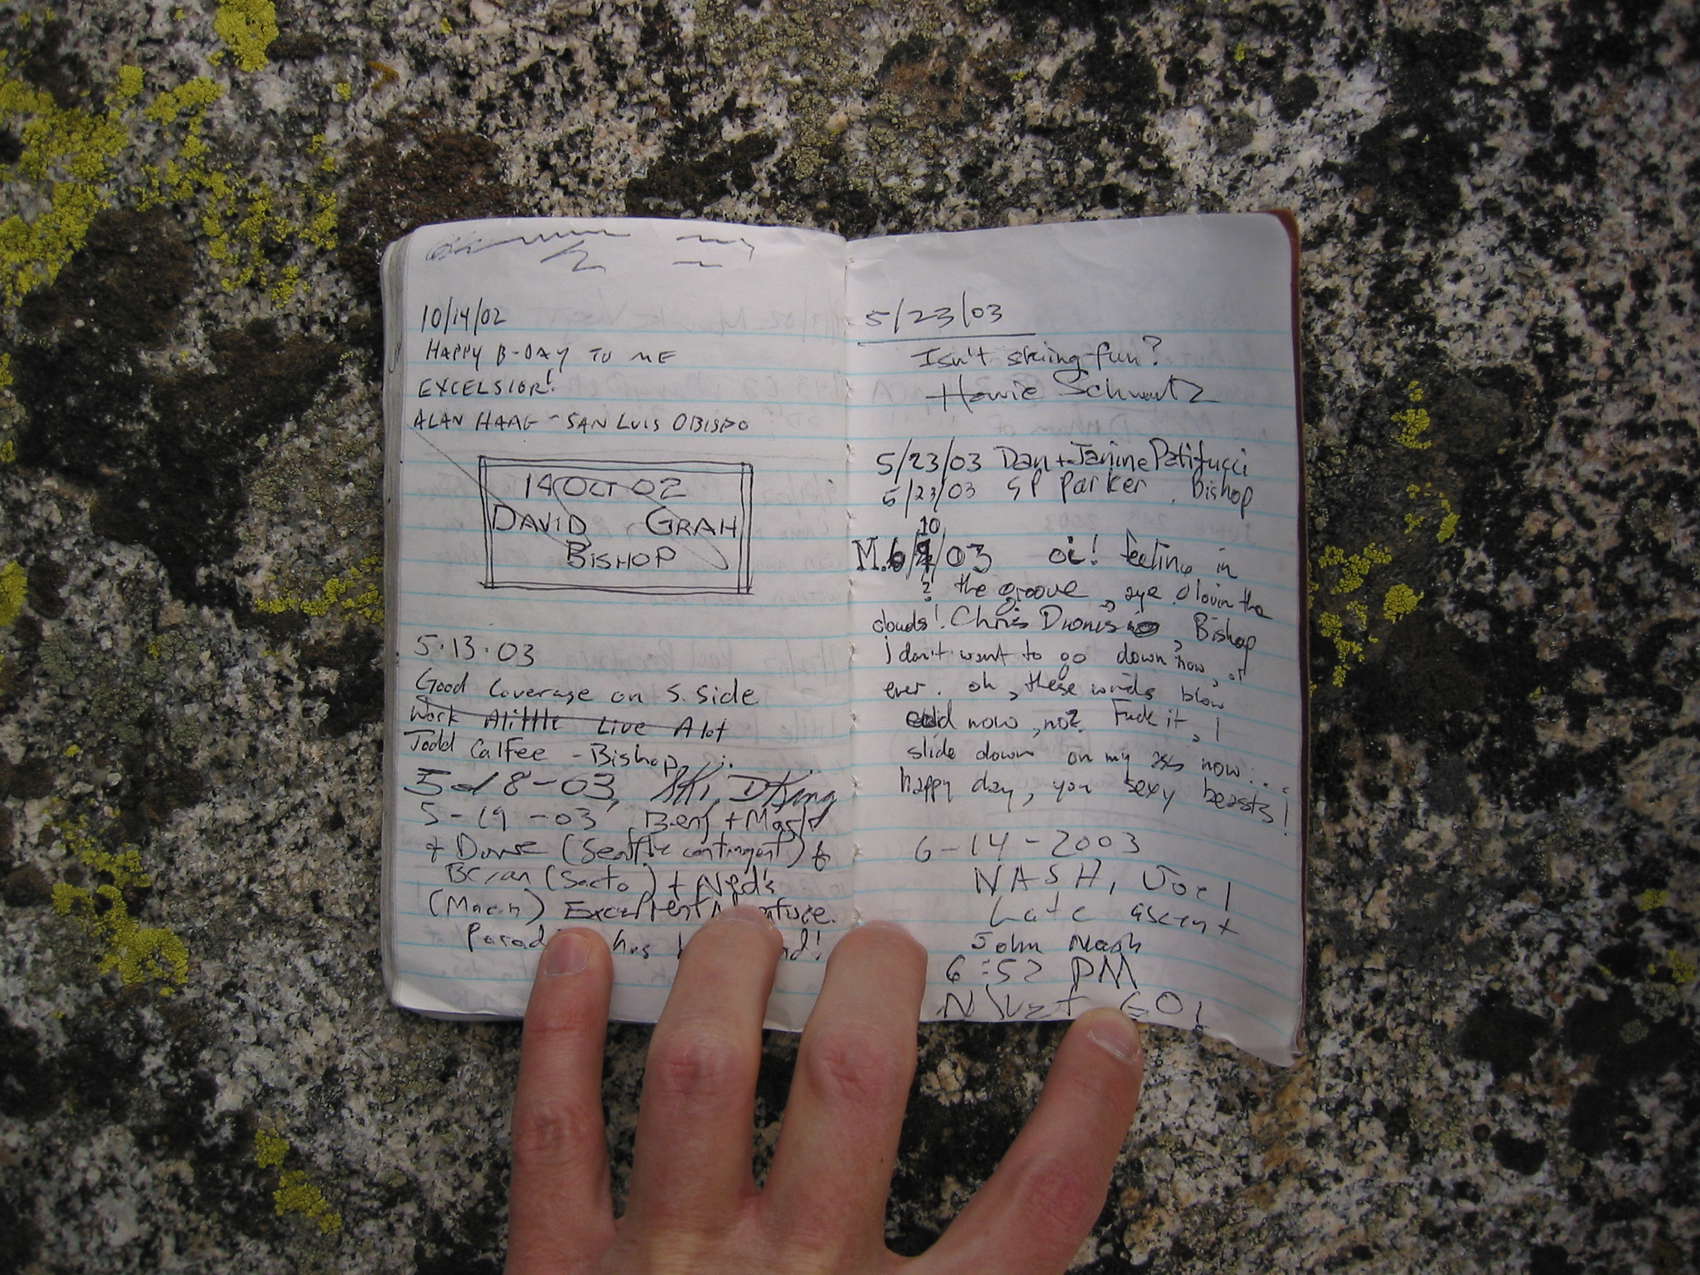 10/14/02
HAPPY B-DAY TO ME
EXCELSIOR!
ALAN HAAG - SAN LUIS OBISPO
14 OCT 02
DAVID GRAH
BISHOP
5.13.03
Good Coverage on S. Side
Work Alittle Live Alot
Todd Calfee - Bishop
5-18-03, SKI, DKing
5-19-03, Benj +
+ (Seattle contingent) &
Brian (Sacto) + Ned's
(Marin) Excellent
has
5/23/03
Isn't skiing fun?
Howie Schwartz
5/23/03 Dan + Janine Patitucci
5/23/03 SP Parker, Bishop
10
M.6/9/03 oi! feeling in
? the groove, aye. I lovin the
clouds! Chris, Bishop
i don't want to go down now, or
ever. oh, these winds blow
cold now, no? Fuck it, I
slide down on my ass now...
happy day, you sexy beasts!
6-14-2003
NASH, Joel
Late ascent
John Nash
6:52 PM
GO!